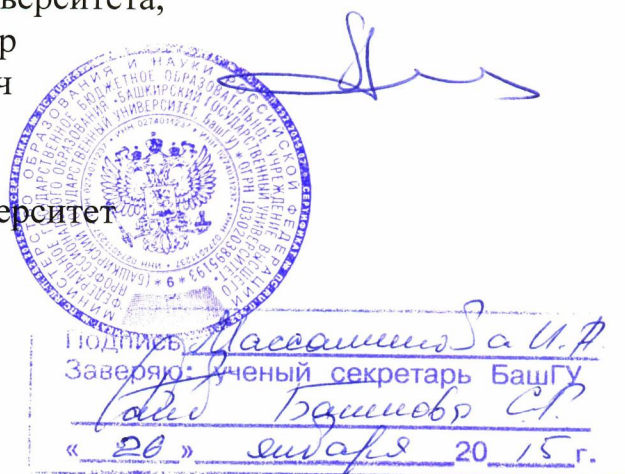 верситета,
р
ч
МИНИСТЕРСТВО ОБРАЗОВАНИЯ И НАУКИ РОССИЙСКОЙ ФЕДЕРАЦИИ
ФЕДЕРАЛЬНОЕ ГОСУДАРСТВЕННОЕ БЮДЖЕТНОЕ ОБРАЗОВАТЕЛЬНОЕ УЧРЕЖДЕНИЕ ВЫСШЕГО
ПРОФЕССИОНАЛЬНОГО ОБРАЗОВАНИЯ «БАШКИРСКИЙ ГОСУДАРСТВЕННЫЙ УНИВЕРСИТЕТ»
(БАШКИРСКИЙ ГОСУДАРСТВЕННЫЙ УНИВЕРСИТЕТ, БашГУ) * ОГРН
ИНН 0274011237
ерситет
Подпись
Заверяю: ученый секретарь БашГУ
« 26 » января 20 15 г.